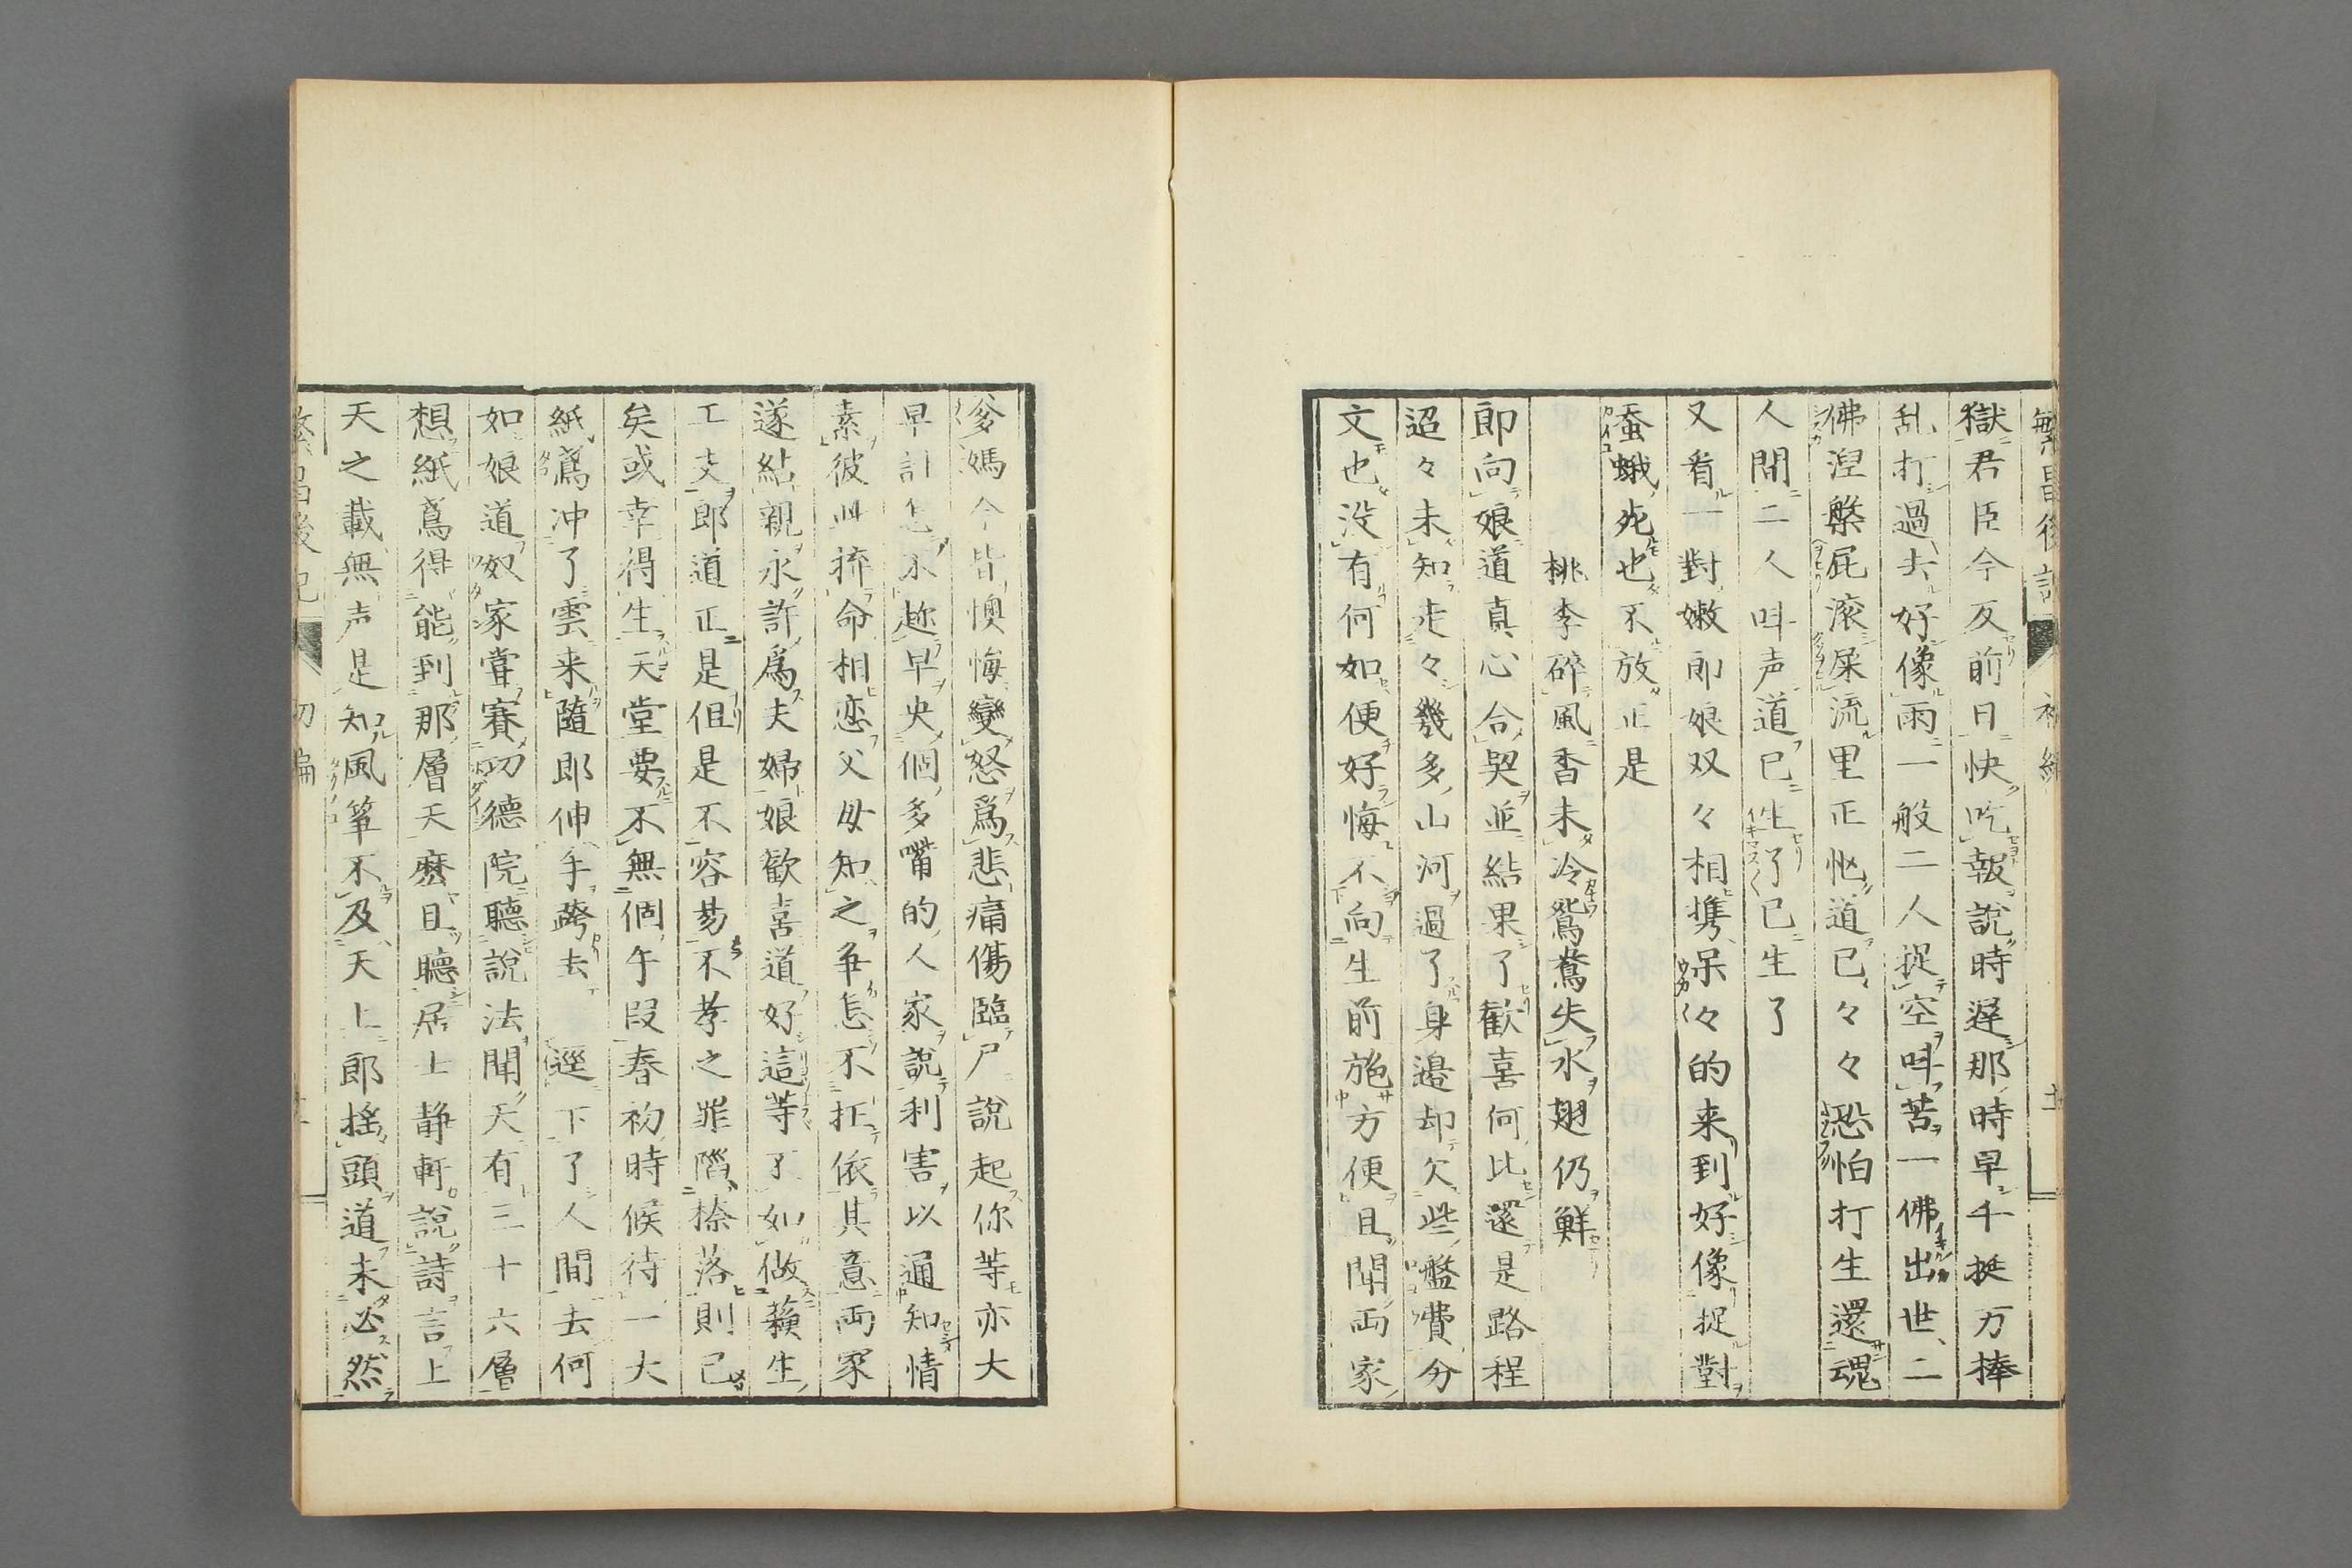 繁昌後記 初編
獄君臣今反前日快吃報說時遅那時早千挺万捧
乱打過去好像雨一般二人捉空呌苦一佛出世二
佛涅槃屁滚屎流里正㐫道已々々恐怕打生還魂
人間二人呌声道已生了已生了
又看一對嫩郎娘双々相携呆々的来到好像捉對
蚕蛾死也不放正是
桃李碎風香未冷鴛鴦失水翅仍鮮
郎向娘道真心合哭並結果了歓喜何比還是路程
迢々未知走々幾多山河過了身邉却欠些盤費分
文也没有何如便好悔不向生前施方便且聞両家
爹媽今皆懊悔變怒爲悲痛傷臨尸說起你等亦大
早計怎不趂早央個多嘴的人家說利害以通知情
素彼此捹命相恋父母知之争怎不抂依其意両家
遂結親永許爲夫婦娘歓喜道好這等了如做蘓生
工夫郎道正是但是不容昜不孝之罪陷捺落則已
矣或幸得生天堂要不無個午段春初時候待一大
紙鳶冲了雲来隨郎伸手跨去逕下了人間去何
如娘道奴家甞賽功德院聽說法聞天有三十六層
想紙鳶得能到那層天麽且聽居士静軒說詩言上
天之載無声是知風筝不及天上郎揺頭道未必然